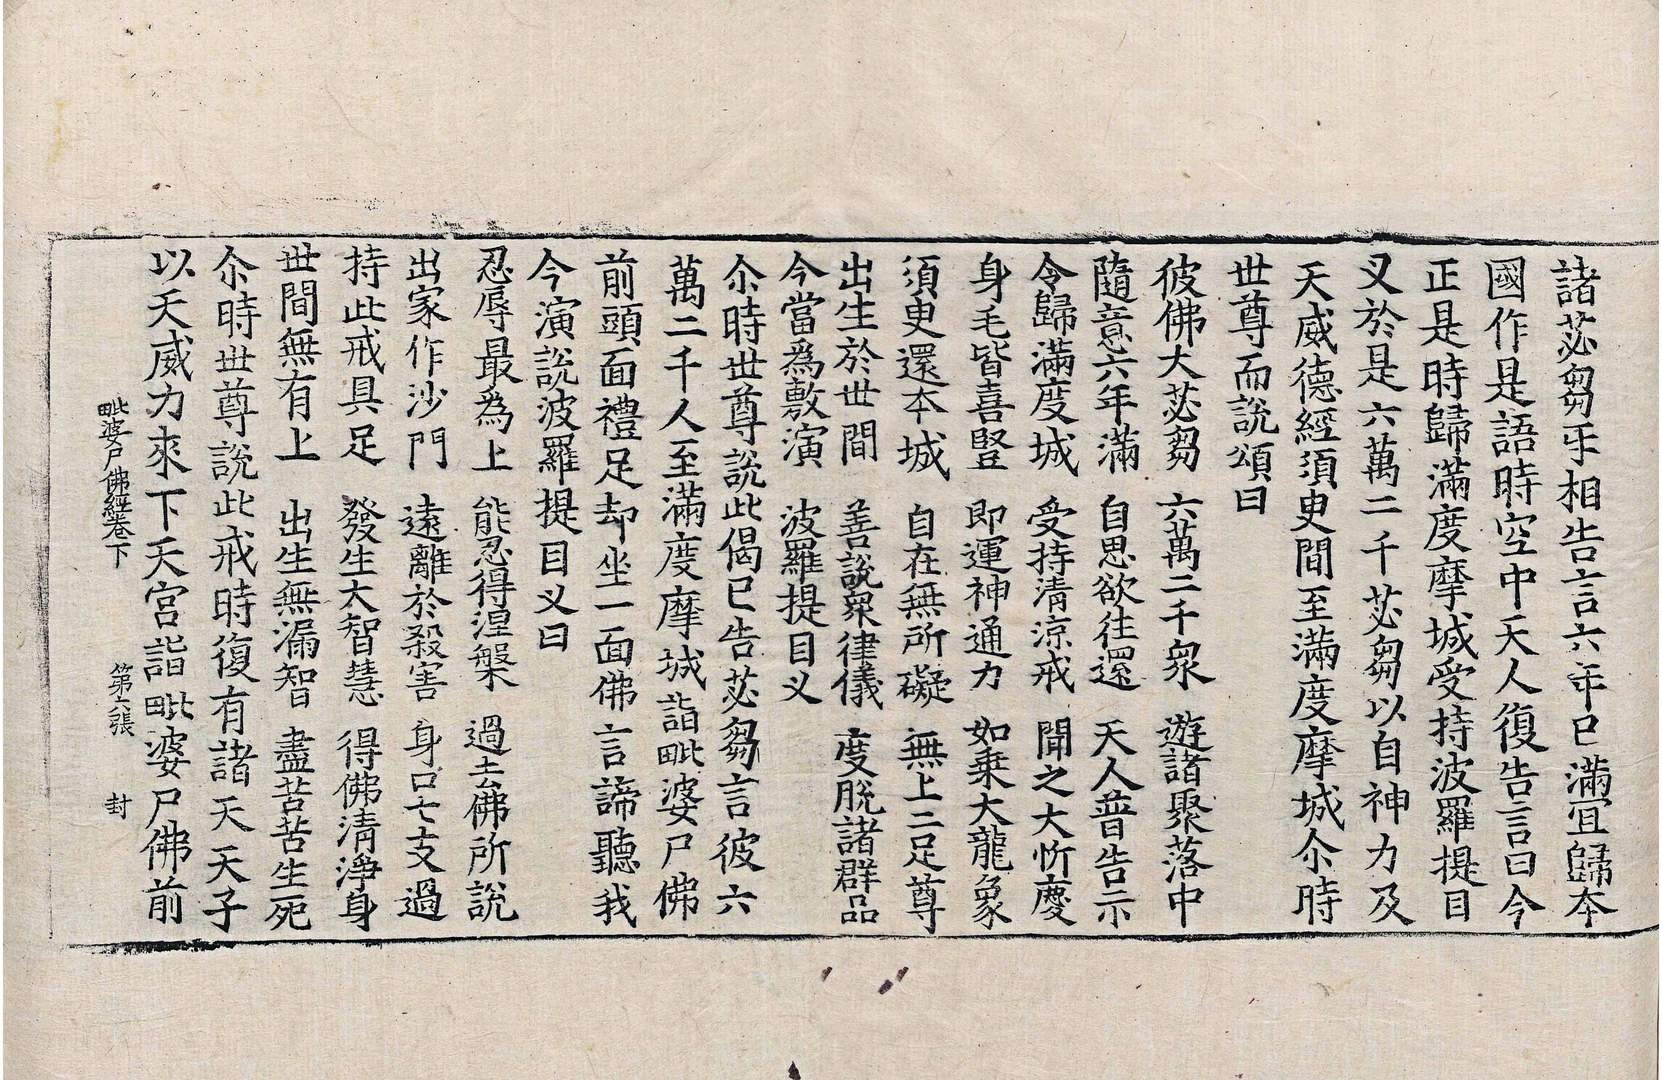 諸苾芻㸦相告言六年已滿冝歸本
國作是語時空中天人復告言曰今
正是時歸滿度摩城受持波羅提目
叉於是六萬二千苾芻以自神力及
天威德經須㬰間至滿度摩城尒時
世尊而說頌曰
彼佛大苾芻 六萬二千衆 遊諸聚落中
隨意六年滿 自思欲往還 天人普告示
令歸滿度城 受持清涼戒 聞之大忻慶
身毛皆喜豎 即運神通力 如乗大龍象
須㬰還本城 自在無所礙 無上二足尊
出生於世間 善說衆律儀 度脫諸群品
今當爲敷演 波羅提目叉
尒時世尊說此偈已告苾芻言彼六
萬二千人至滿度摩城詣毗婆尸佛
前頭面禮足却坐一面佛言諦聽我
今演說波羅提目叉曰
忍辱最爲上 能忍得涅槃 過去佛所說
出家作沙門 遠離於殺害 身口七支過
持此戒具足 發生大智慧 得佛清淨身
世間無有上 出生無漏智 盡苦苦生死
尒時世尊說此戒時復有諸天天子
以天威力來下天宮詣毗婆尸佛前
毗婆尸佛經卷下 第六張 封